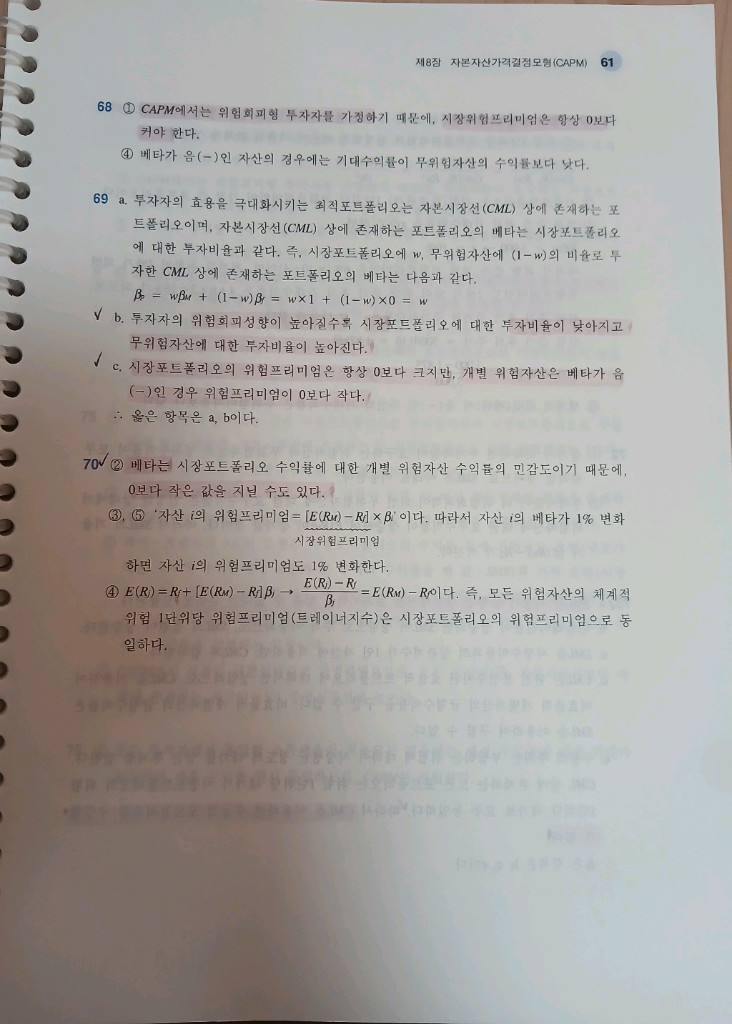 제8장 자본자산가격결정모형(CAPM) 61
68 ① CAPM에서는 위험회피형 투자자를 가정하기 때문에, 시장위험프리미엄은 항상 0보다
커야 한다.
④ 베타가 음(-)인 자산의 경우에는 기대수익률이 무위험자산의 수익률보다 낮다.
69 a. 투자자의 효용을 극대화시키는 최적포트폴리오는 자본시장선(CML) 상에 존재하는 포
트폴리오이며, 자본시장선(CML) 상에 존재하는 포트폴리오의 베타는 시장포트폴리오
에 대한 투자비율과 같다. 즉, 시장포트폴리오에 w, 무위험자산에 (1-w)의 비율로 투
자한 CML 상에 존재하는 포트폴리오의 베타는 다음과 같다.
βp = wβM + (1-w)βf = w×1 + (1-w)×0 = w
✓ b. 투자자의 위험회피성향이 높아질수록 시장포트폴리오에 대한 투자비율이 낮아지고
무위험자산에 대한 투자비율이 높아진다.
✓ c. 시장포트폴리오의 위험프리미엄은 항상 0보다 크지만, 개별 위험자산은 베타가 음
(-)인 경우 위험프리미엄이 0보다 작다.
∴ 옳은 항목은 a, b이다.
70✓ ② 베타는 시장포트폴리오 수익률에 대한 개별 위험자산 수익률의 민감도이기 때문에,
0보다 작은 값을 지닐 수도 있다.
③, ⑤ '자산 i의 위험프리미엄=[E(RM)-Rf]×βi'이다. 따라서 자산 i의 베타가 1% 변화
시장위험프리미엄
하면 자산 i의 위험프리미엄도 1% 변화한다.
④ E(Rj)=Rf+[E(RM)-Rf]βj → E(Rj)-Rf/βj=E(RM)-Rf이다. 즉, 모든 위험자산의 체계적
위험 1단위당 위험프리미엄(트레이너지수)은 시장포트폴리오의 위험프리미엄으로 동
일하다.